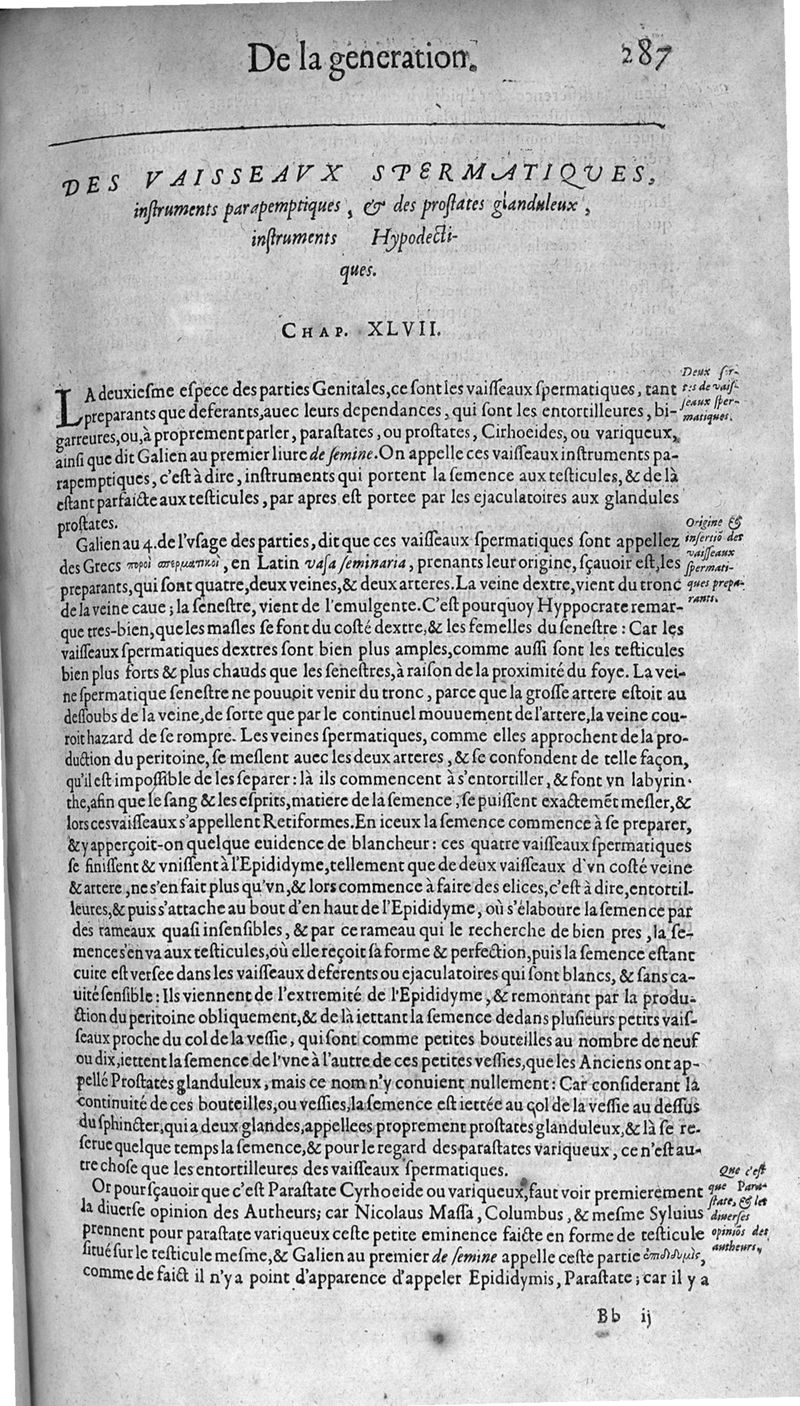 De la generation.
287
DES VAISSEAVX SPERMATIQVES,
instruments parapemptiques, & des prostates glanduleux,
instruments Hypodecti-
ques.
CHAP. XLVII.
Deux sor-
tes de vais-
seaux sper-
matiques.
LA deuxiesme espece des parties Genitales, ce sont les vaisseaux spermatiques, tant
preparants que deferants, auec leurs dependances, qui sont les entortilleures, bi-
garreures, ou, à proprement parler, parastates, ou prostates, Cirhoeides, ou variqueux,
ainsi que dit Galien au premier liure de semine. On appelle ces vaisseaux instruments pa-
rapemptiques, c'est à dire, instruments qui portent la semence aux testicules, & de là
estant parfaicte aux testicules, par apres est portee par les ejaculatoires aux glandules
prostates.
Origine &
insertiō des
vaisseaux
spermati-
ques prepa-
rants.
Galien au 4. de l'vsage des parties, dit que ces vaisseaux spermatiques sont appellez
des Grecs ποροὶ σπερματικοὶ, en Latin vasa seminaria, prenants leur origine, sçauoir est, les
preparants, qui sont quatre, deux veines, & deux arteres. La veine dextre, vient du tronc
de la veine caue; la senestre, vient de l'emulgente. C'est pourquoy Hyppocrate remar-
que tres-bien, que les masles se font du costé dextre, & les femelles du senestre: Car les
vaisseaux spermatiques dextres sont bien plus amples, comme aussi sont les testicules
bien plus forts & plus chauds que les senestres, à raison de la proximité du foye. La vei-
ne spermatique senestre ne pouuoit venir du tronc, parce que la grosse artere estoit au
dessoubs de la veine, de sorte que par le continuel mouuement de l'artere, la veine cou-
roit hazard de se rompre. Les veines spermatiques, comme elles approchent de la pro-
duction du peritoine, se meslent auec les deux arteres, & se confondent de telle façon,
qu'il est impossible de les separer: là ils commencent à s'entortiller, & font vn labyrin-
the, afin que le sang & les esprits, matiere de la semence, se puissent exactemēt mesler, &
lors ces vaisseaux s'appellent Retiformes. En iceux la semence commence à se preparer,
& y apperçoit-on quelque euidence de blancheur: ces quatre vaisseaux spermatiques
se finissent & vnissent à l'Epididyme, tellement que de deux vaisseaux d'vn costé veine
& artere, ne s'en fait plus qu'vn, & lors commence à faire des elices, c'est à dire, entortil-
leures, & puis s'attache au bout d'en haut de l'Epididyme, où s'élaboure la semence par
des rameaux quasi insensibles, & par ce rameau qui le recherche de bien pres, la se-
mence s'en va aux testicules, où elle reçoit sa forme & perfection, puis la semence estant
cuite est versee dans les vaisseaux deferents ou ejaculatoires qui sont blancs, & sans ca-
uité sensible: Ils viennent de l'extremité de l'Epididyme, & remontant par la produ-
ction du peritoine obliquement, & de là iettant la semence dedans plusieurs petits vais-
seaux proche du col de la vessie, qui sont comme petites bouteilles au nombre de neuf
ou dix, iettent la semence de l'vne à l'autre de ces petites vessies, que les Anciens ont ap-
pellé Prostates glanduleux, mais ce nom n'y conuient nullement: Car considerant là
continuité de ces bouteilles, ou vessies, la semence est iettée au col de la vessie au dessus
du sphincter, qui a deux glandes, appellees proprement prostates glanduleux, & là se re-
serue quelque temps la semence, & pour le regard des parastates variqueux, ce n'est au-
tre chose que les entortilleures des vaisseaux spermatiques.
Que c'est
que Para-
state, & les
diuerses
opiniōs des
autheurs.
Or pour sçauoir que c'est Parastate Cyrhoeide ou variqueux, faut voir premierement
la diuerse opinion des Autheurs; car Nicolaus Massa, Columbus, & mesme Syluius
prennent pour parastate variqueux ceste petite eminence faicte en forme de testicule
situé sur le testicule mesme, & Galien au premier de semine appelle ceste partie ἐπιδιδυμὶς,
comme de faict il n'y a point d'apparence d'appeler Epididymis, Parastate; car il y a
Bb ij